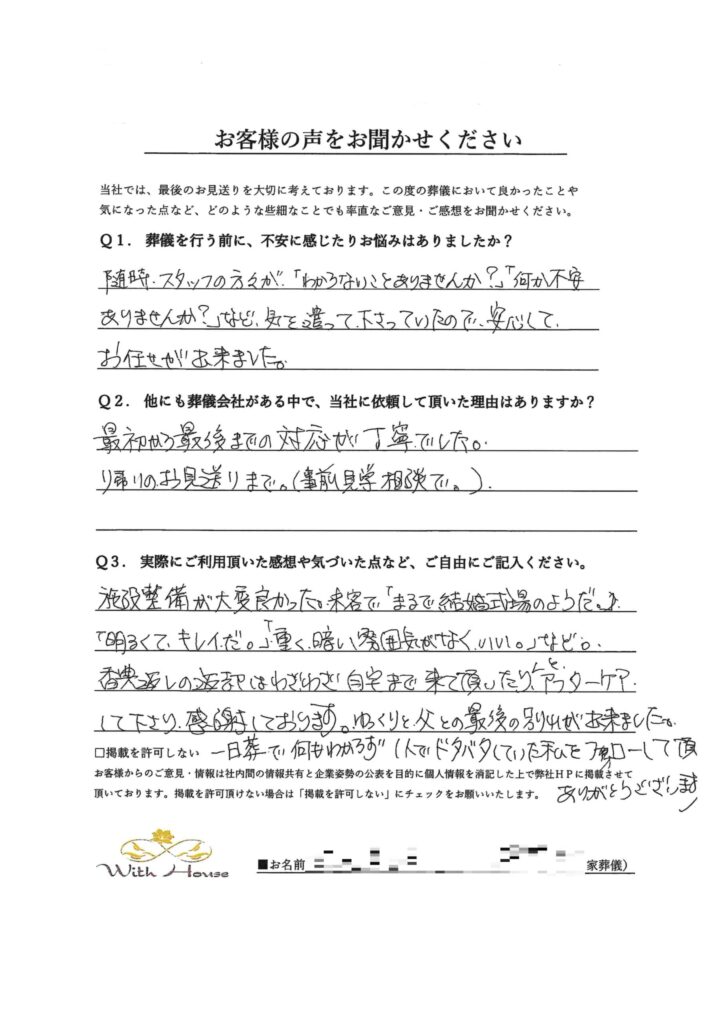 お客様の声をお聞かせください
当社では、最後のお見送りを大切に考えております。この度の葬儀において良かったことや
気になった点など、どのような些細なことでも率直なご意見・ご感想をお聞かせください。
Q1. 葬儀を行う前に、不安に感じたりお悩みはありましたか？
随時、スタッフの方々が、「わからないことありませんか？」「何か不安
ありませんか？」など、気を遣って下さっていたので、安心して、
お任せが出来ました。
Q2. 他にも葬儀会社がある中で、当社に依頼して頂いた理由はありますか？
最初から最後までの対応が丁寧でした。
帰りのお見送りまで。（事前見学相談で。）
Q3. 実際にご利用頂いた感想や気づいた点など、ご自由にご記入ください。
施設整備が大変良かった。来客で「まるで結婚式場のようだ。」
「明るくて、キレイだ。」「重く、暗い雰囲気がなく、いい。」など。
香典返しの返却はわざわざ自宅まで来て頂いたりと、アフターケア
して下さり、感謝しております。ゆっくりと父との最後の別れが出来ました。
□掲載を許可しない 一日葬で何もわからず 1人でドタバタしていた私をフォローして頂
お客様からのご意見・情報は社内間の情報共有と企業姿勢の公表を目的に個人情報を消記した上で弊社HPに掲載させて
頂いております。掲載を許可頂けない場合は「掲載を許可しない」にチェックをお願いいたします。 ありがとうございます
With House
■お名前 家葬儀）